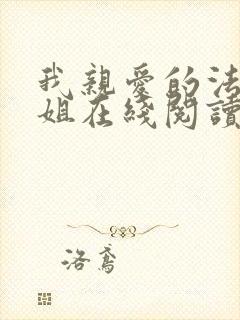 我親愛的法
姐在綫閱讀
洛鳶